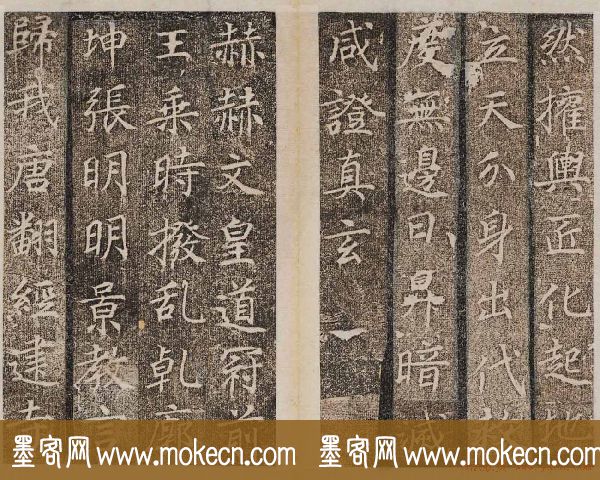 然權輿匠化起地
立天分身出代
度無邊日昇暗滅
咸證真玄
赫赫文皇道冠前
王乘時撥乱乹廓
坤張明明景教言
歸我唐翻經建寺
墨客网 www.mokecn.com 墨客网 www.mokecn.com